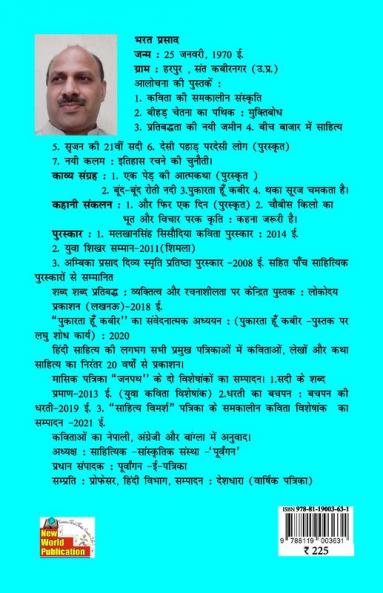 भरत प्रसाद
जन्म : 25 जनवरी, 1970 ई.
ग्राम : हरपुर , संत कबीरनगर (उ.प्र.)
आलोचना की पुस्तकें :
1. कविता की समकालीन संस्कृति
2. बीहड़ चेतना का पथिक : मुक्तिबोध
3. प्रतिबद्धता की नयी जमीन 4. बीच बाजार में साहित्य
5. सृजन की 21वीं सदी 6. देसी पहाड़ परदेसी लोग (पुरस्कृत)
7. नयी कलम : इतिहास रचने की चुनौती।
काव्य संग्रह : 1. एक पेड़ की आत्मकथा (पुरस्कृत )
2. बूंद-बूंद रोती नदी 3.पुकारता हूँ कबीर 4. थका सूरज चमकता है।
कहानी संकलन : 1. और फिर एक दिन (पुरस्कृत) 2. चौबीस किलो का
भूत और विचार परक कृति : कहना जरूरी है।
पुरस्कार : 1. मलखानसिंह सिसौदिया कविता पुरस्कार : 2014 ई.
2. युवा शिखर सम्मान-2011(शिमला)
3. अम्बिका प्रसाद दिव्य स्मृति प्रतिष्ठा पुरस्कार -2008 ई. सहित पाँच साहित्यिक
पुरस्कारों से सम्मानित
शब्द शब्द प्रतिबद्ध : व्यक्तित्व और रचनाशीलता पर केन्द्रित पुस्तक : लोकोदय
प्रकाशन (लखनऊ)-2018 ई.
"पुकारता हूँ कबीर" का संवेदनात्मक अध्ययन : (पुकारता हूँ कबीर -पुस्तक पर
लघु शोध कार्य) : 2020
हिंदी साहित्य की लगभग सभी प्रमुख पत्रिकाओं में कविताओं, लेखों और कथा
साहित्य का निरंतर 20 वर्षों से प्रकाशन।
मासिक पत्रिका "जनपथ" के दो विशेषांकों का सम्पादन। 1.सदी के शब्द
प्रमाण-2013 ई. (युवा कविता विशेषांक) 2.धरती का बचपन : बचपन की
धरती-2019 ई. 3. "साहित्य विमर्श" पत्रिका के समकालीन कविता विशेषांक का
सम्पादन -2021 ई.
कविताओं का नेपाली, अंग्रेजी और बांग्ला में अनुवाद।
अध्यक्ष : साहित्यिक -सांस्कृतिक संस्था -'पूर्वांगन'
प्रधान संपादक : पूर्वांगन -ई-पत्रिका
सम्प्रति : प्रोफेसर, हिंदी विभाग, सम्पादन : देशधारा (वार्षिक पत्रिका)
New
World
Publication
ISBN 978-81-19003-63-1
9 788119 003631
₹ 225